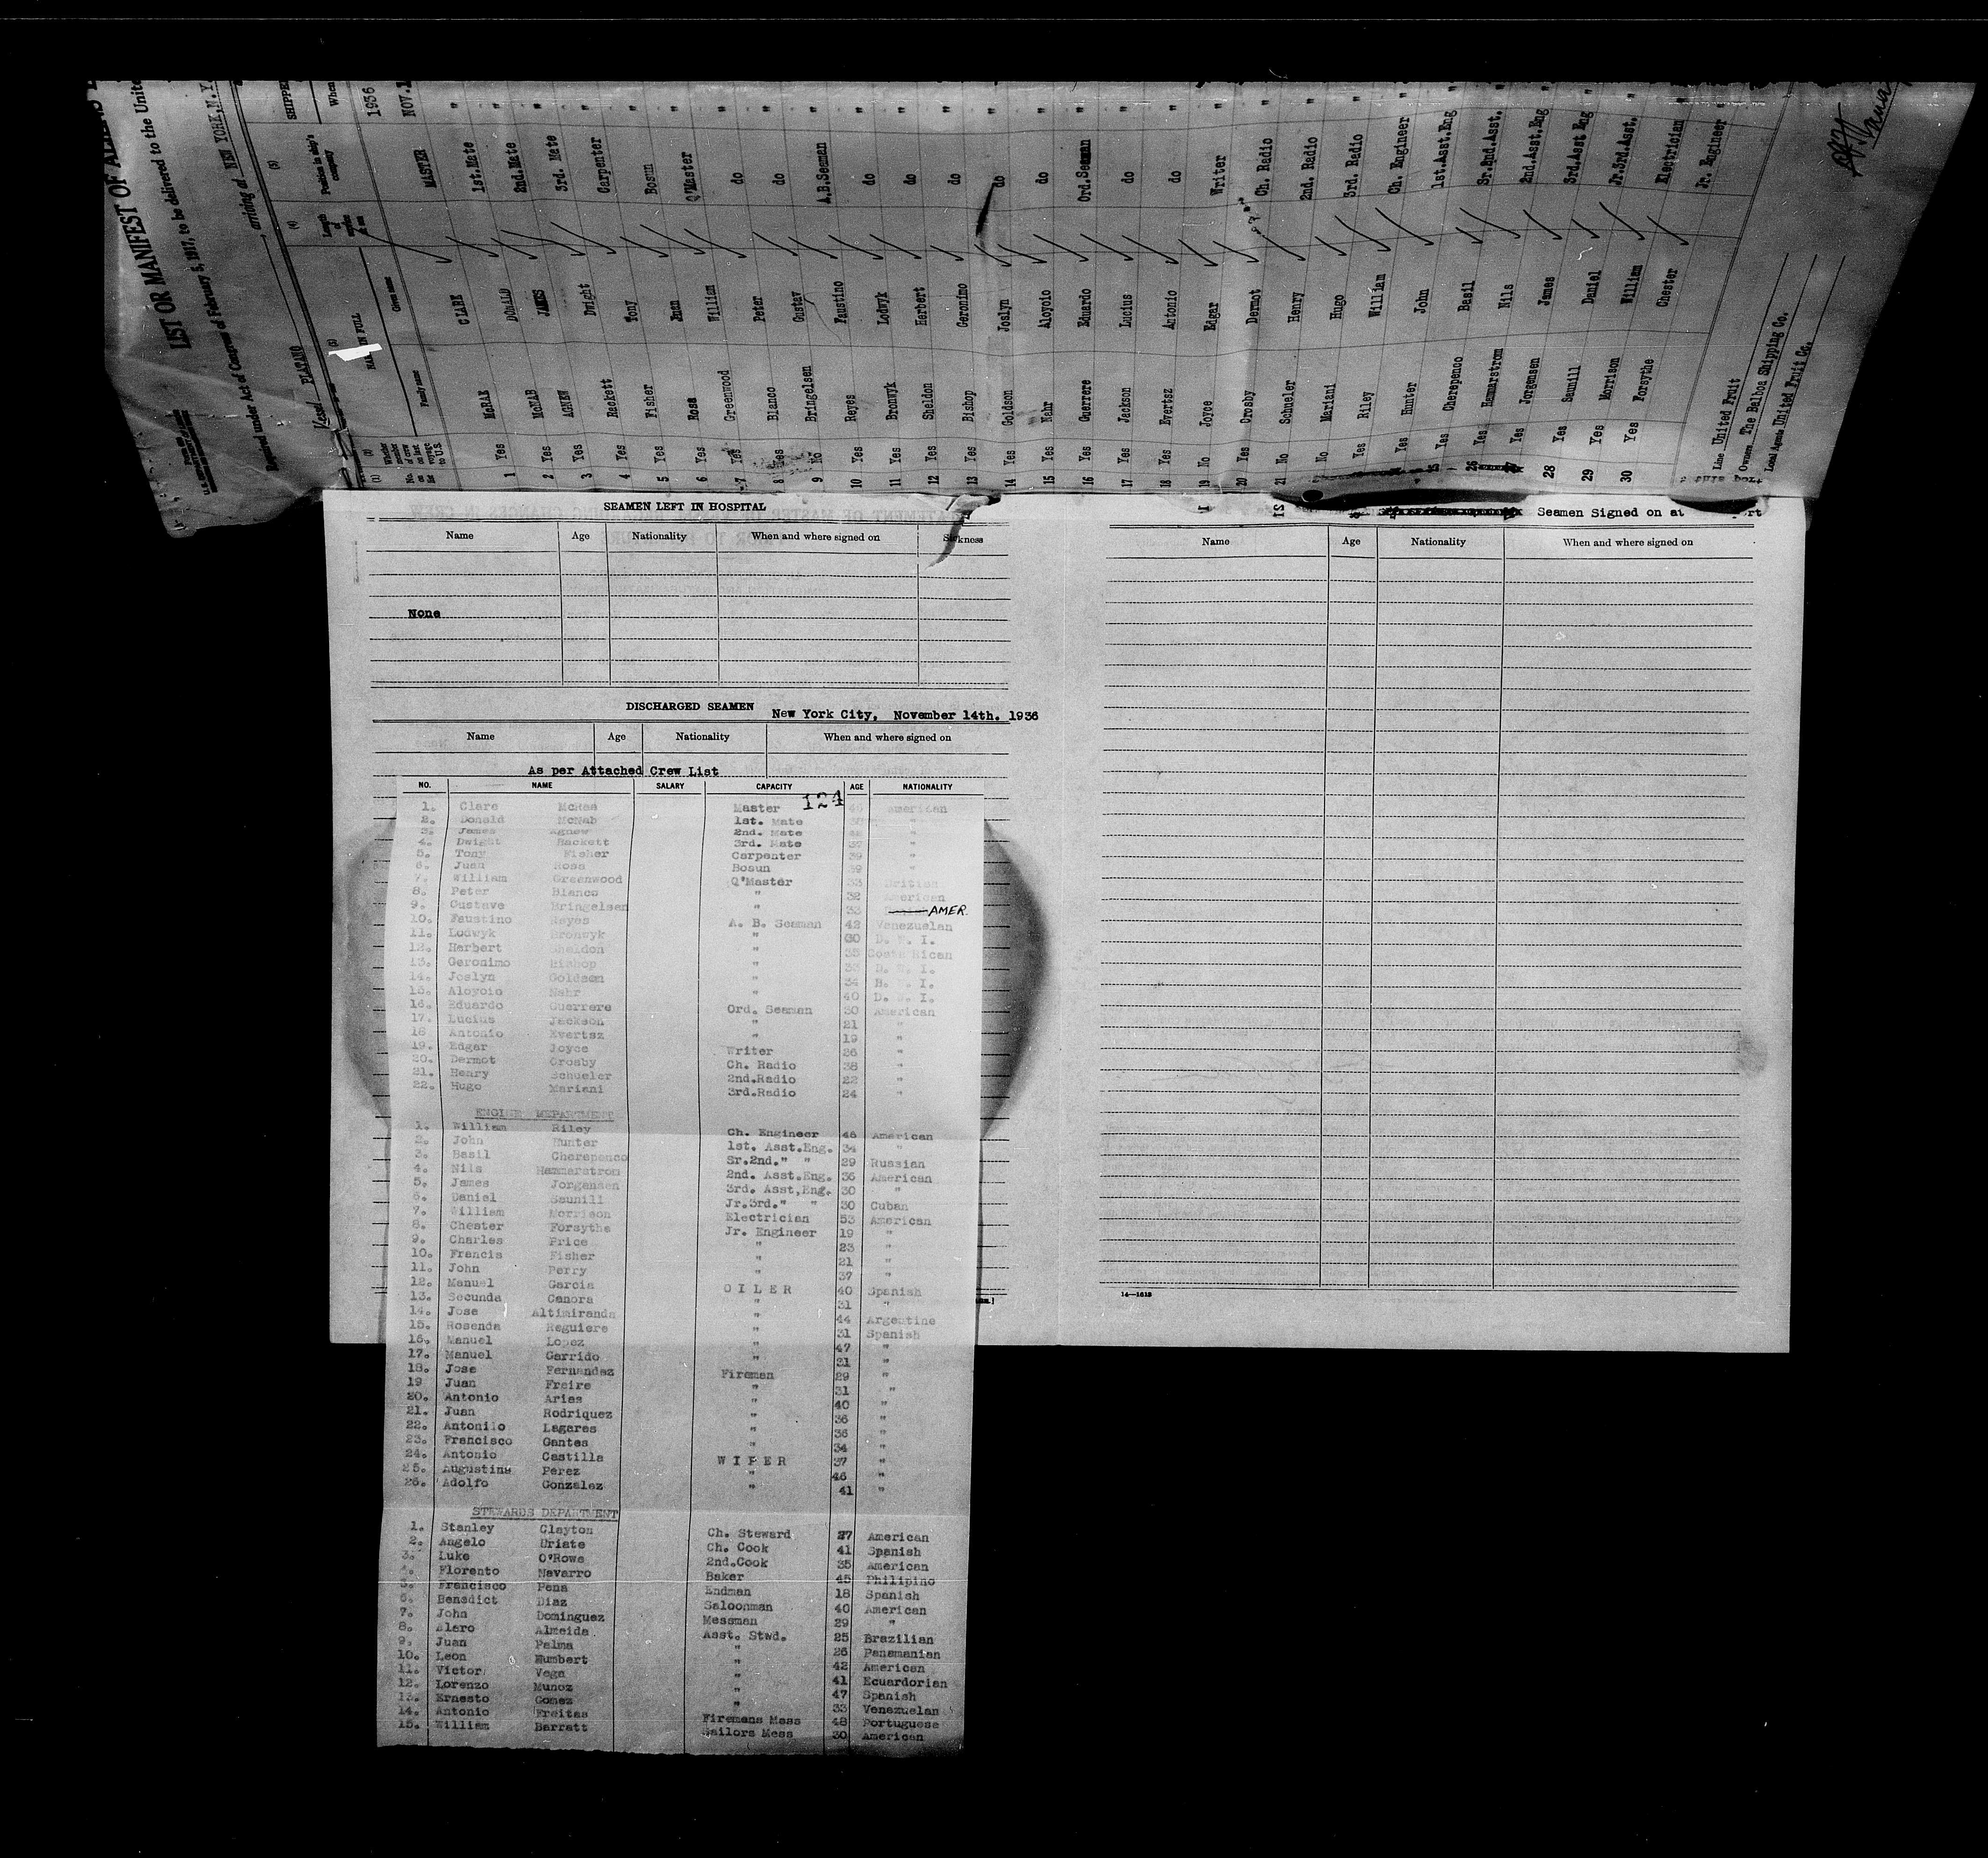 LIST OR MANIFEST OF
Required under Act of Congress of February 5, 1917, to be delivered to the
Vessel PLATANO arriving at NEW YORK, N.Y.
(1) (2) (3) (4) (5)
No. on list
Whether member of crew on last voyage to U.S.
NAME IN FULL
Family name Given name
Length of service at sea
Position in ship's company
When
1936
McRAE CLARK MASTER NOV.
1 Yes McNAB DONALD 1st.Mate "
2 Yes AGNEW JAMES 2nd.Mate "
3 Yes Rackett Dwight 3rd. Mate "
4 Yes Fisher Tony Carpenter "
5 Yes Rosa Juan Bosun "
6 Yes Greenwood William Q'Master "
7 Yes Blanco Peter do "
8 Yes Bringelsen Gustav do "
9 No Reyes Faustino A.B.Seaman "
10 Yes Bronwyk Lodwyk do "
11 Yes Sheldon Herbert do "
12 Yes Bishop Geronimo do "
13 Yes Goldson Joslyn do "
14 Yes Nahr Aloyoio do "
15 Yes Guerrere Eduardo Ord.Seaman "
16 Yes Jackson Lucius do "
17 Yes Evertsz Antonio do "
18 Yes Joyce Edgar Writer "
19 No Crosby Dermot Ch. Radio "
20 Yes Schueler Henry 2nd. Radio "
21 No Mariani Hugo 3rd. Radio "
No Riley William Ch. Engineer "
Yes Hunter John 1st.Asst.Eng "
Yes Cherepenco Basil Sr.2nd.Asst. "
Yes Hammarstrom Nils 2nd.Asst.Eng "
26 Yes Jorgensen James 3rd.Asst Eng "
Yes Saunill Daniel Jr.3rd.Asst. "
28 Yes Morrison William Electrician "
29 Yes Forsythe Chester Jr. Engineer
30 Yes
Line United Fruit
Owners The Balboa Shipping Co.
Local Agents United Fruit Co.
SEAMEN LEFT IN HOSPITAL
Name Age Nationality When and where signed on Sickness
None
DISCHARGED SEAMEN New York City, November 14th. 1936
Name Age Nationality When and where signed on
As per Attached Crew List
NO. NAME SALARY CAPACITY AGE NATIONALITY
124
1. Clare McRea Master American
2. Donald McNab 1st. Mate "
3. James Agnew 2nd. Mate "
4. Dwight Rackett 3rd. Mate 37 "
5. Tony Fisher Carpenter 39 "
6. Juan Rosa Bosun 39 "
7. William Greenwood Q'Master 33 British
8. Peter Blanco " 32 American
9. Gustave Bringelsen " 33 AMER.
10. Faustino Reyes A. B. Seaman 42 Venezuelan
11. Lodwyk Bronwyk " 30 D. W. I.
12. Herbert Sheldon " 35 Costa Rican
13. Geronimo Bishop " D. W. I.
14. Joslyn Goldson " 34 B. W. I.
15. Aloyoio Nahr " 40 D. W. I.
16. Eduardo Guerrere Ord. Seaman 30 American
17. Lucius Jackson " 21 "
18 Antonio Evertsz " 19 "
19. Edgar Joyce Writer 26 "
20. Dermot Crosby Ch. Radio 38 "
21. Henry Schueler 2nd.Radio 22 "
22. Hugo Mariani 3rd.Radio 24 "
ENGINE DEPARTMENT
1. William Riley Ch. Engineer 46 American
2. John Hunter 1st. Asst.Eng. 34 "
3. Basil Cherepenco Sr.2nd." " 29 Russian
4. Nils Hammerstrom 2nd. Asst.Eng. 36 American
5. James Jorgensen 3rd. Asst,Eng. 30 "
6. Daniel Saunill Jr.3rd." " 30 Cuban
7. William Morrison Electrician 53 American
8. Chester Forsythe Jr. Engineer 19 "
9. Charles Price " 23 "
10. Francis Fisher " 21 "
11. John Perry " 37 "
12. Manuel Garcia OILER 40 Spanish
13. Secunda Canora " 31 "
14. Jose Altimiranda " 44 Argentine
15. Rosenda Reguiere " 31 Spanish
16. Manuel Lopez " 47 "
17. Manuel Garrido " 21 "
18. Jose Fernandez Fireman 29 "
19 Juan Freire " 31 "
20. Antonio Arias " 40 "
21. Juan Rodriquez " 36 "
22. Antonilo Lagares " 36 "
23. Francisco Gantes " 34 "
24. Antonio Castilla WIPER 37 "
25. Augustine Perez " 46 "
26. Adolfo Gonzalez " 41 "
STEWARDS DEPARTMENT
1. Stanley Clayton Ch. Steward 27 American
2. Angelo Uriate Ch. Cook 41 Spanish
3. Luke O'Rowe 2nd.Cook 35 American
4. Florento Navarro Baker 45 Philipino
5. Francisco Pena Endman 18 Spanish
6. Benedict Diaz Saloonman 40 American
7. John Dominguez Messman 29 "
8. Alaro Almeida Asst. Stwd. 25 Brazilian
9. Juan Palma " 26 Panamanian
10. Leon Humbert " 42 American
11. Victor Vega " 41 Ecuardorian
12. Lorenzo Munoz " 47 Spanish
13. Ernesto Gomez " 33 Venezuelan
14. Antonio Freitas Firemans Mess 48 Portuguese
15. William Barratt Sailors Mess 30 American
Seamen Signed on at
Name Age Nationality When and where signed on
14—1618